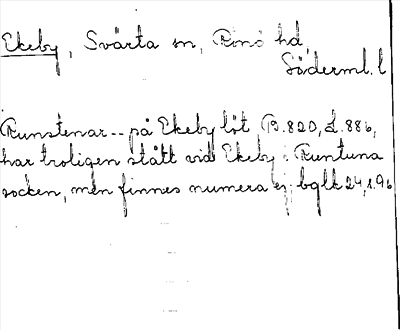 Ekeby, Svärta sn, Rönö hd,
Söderml. l
Runstenar -- på Ekeby löt, B.820, L.886,
har troligen stått vid Ekeby i Runtuna
socken, men finnes numera ej; bglk 24,1.96